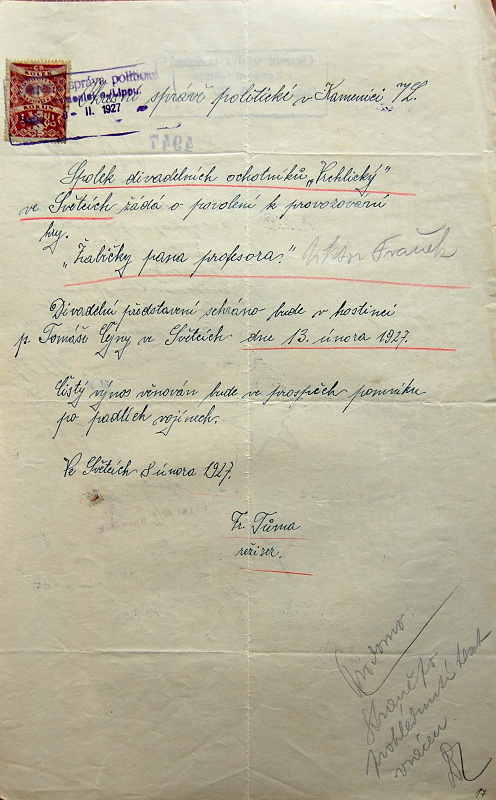 správa politická
n./Lipou
- II. 1927
správě politické v Kamenici n/L.
Spolek divadelních ochotníků „Vrchlický"
ve Světcích žádá o povolení k provozování
hry.
„Žabičky pana profesora." Viktor
Divadelní představení sehráno bude v hostinci
p. Tomáše ve Světcích dne 13. února 1927.
Čistý výnos věnován bude ve prospěch pomníku
po padlých vojínech.
Ve Světcích 8 února 1927.
Fr. Tůma
režizer.
vrácen
17